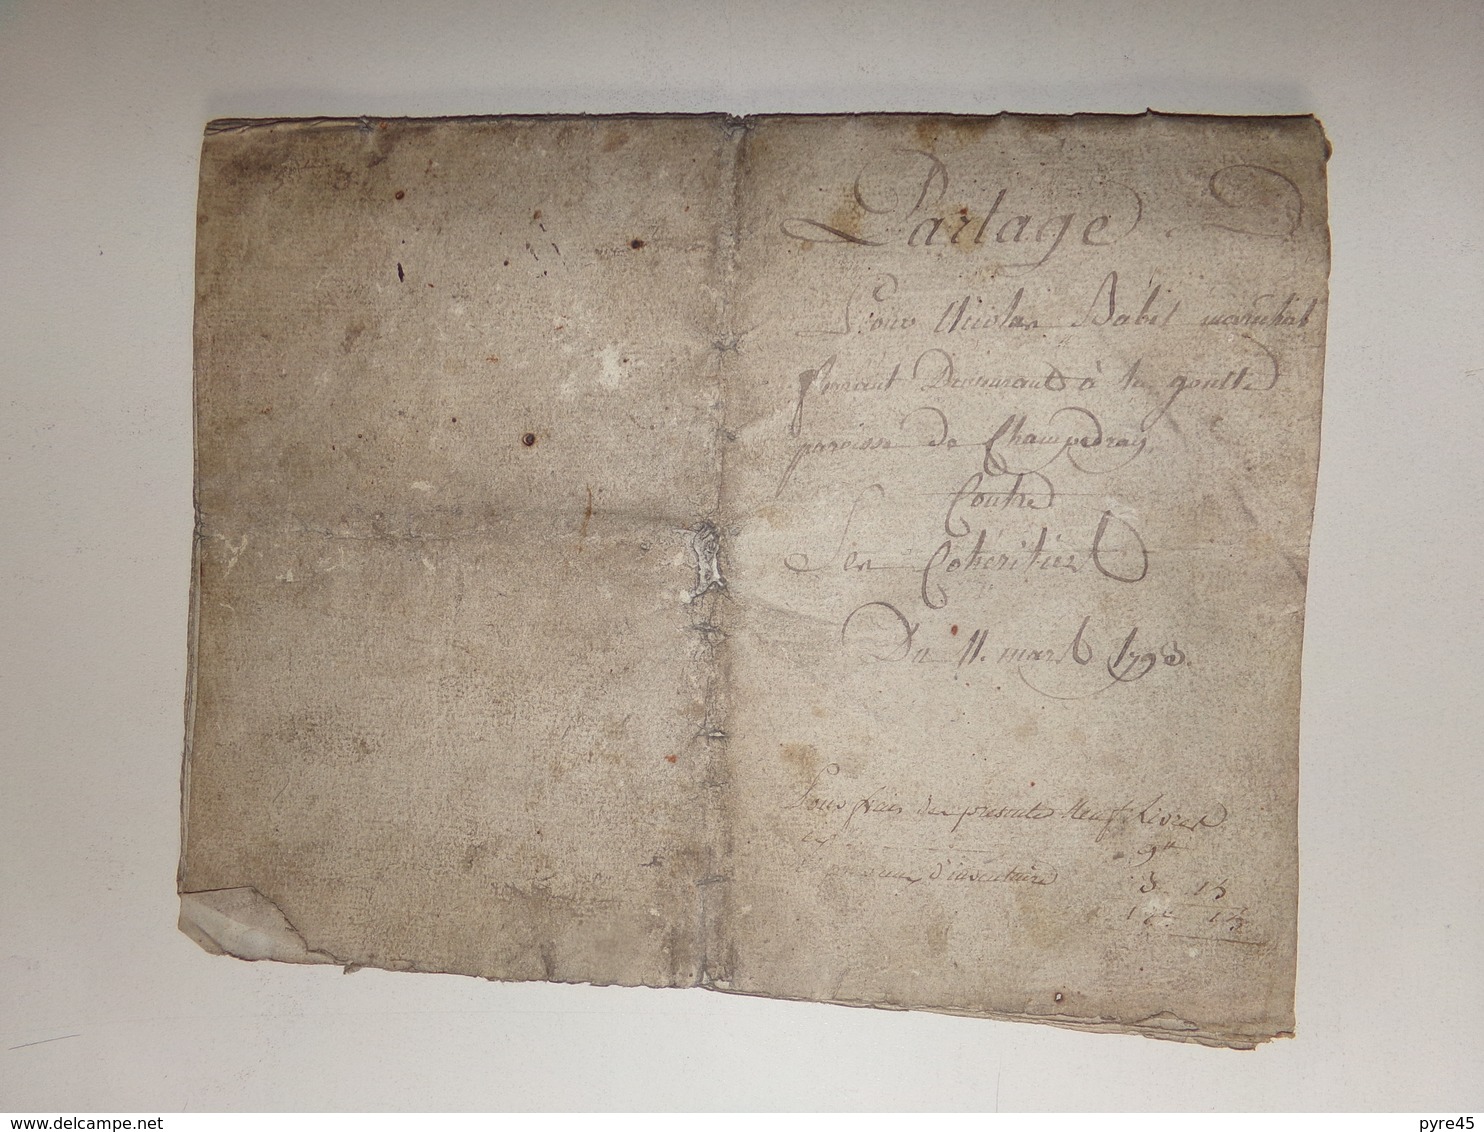 Partage
Pour Nicolas Babel maréchal
ferrant Demeurant à la goutte
paroisse de Champdray,
Contre
Ses Cohéritiers
Du 11. mars 1793.
Pour frais des presentes Neuf Livres
9#
d'inventaire 3 15
12 15
www.delcampe.net
pyre45